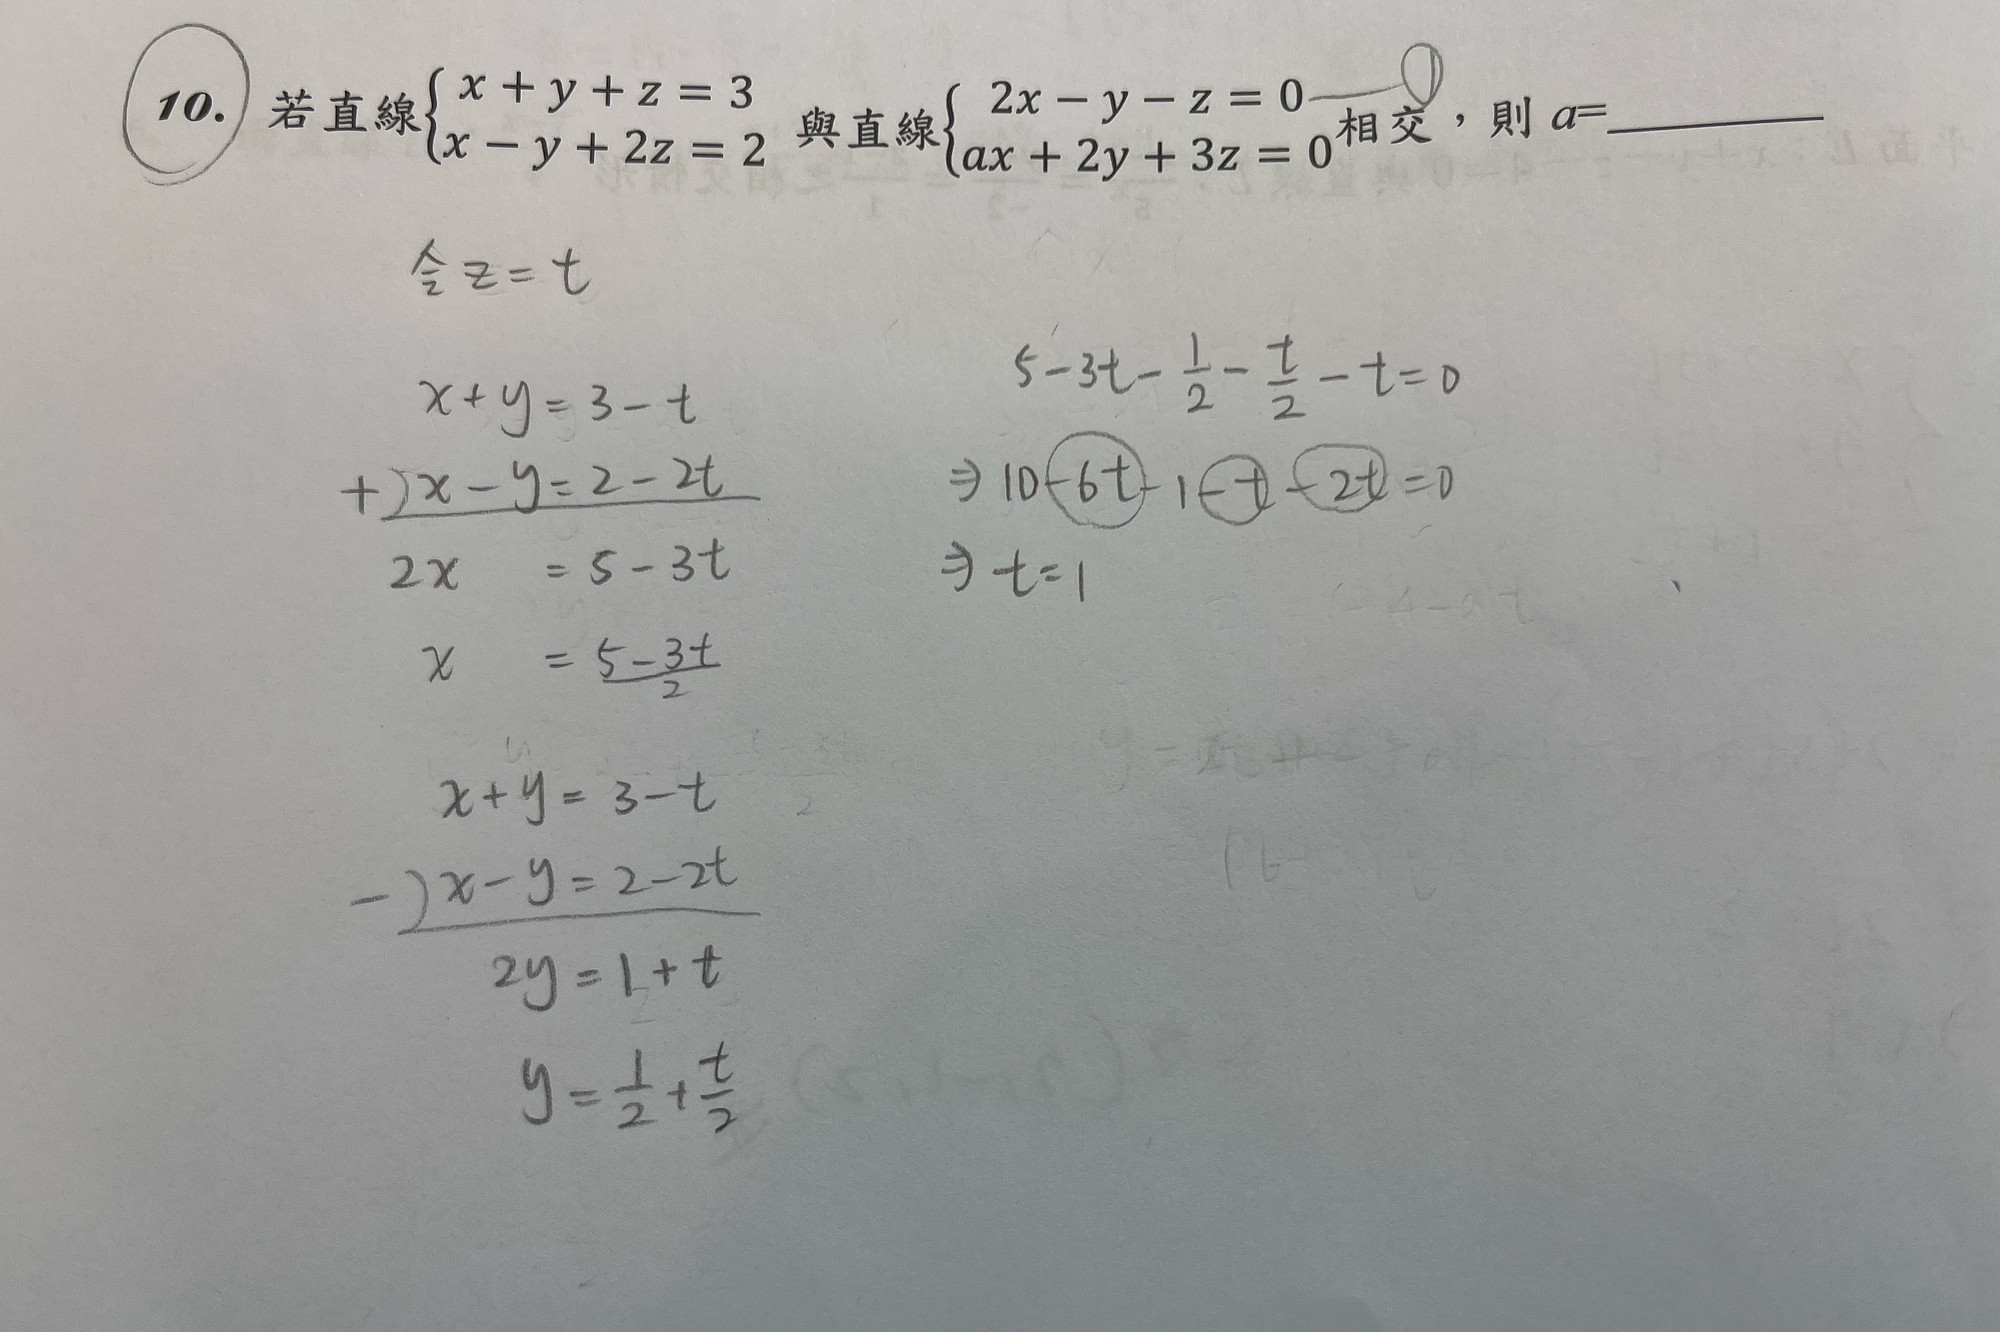 10. 若直線{x + y + z = 3 與直線{2x − y − z = 0 相交，則 a=
x − y + 2z = 2 ax + 2y + 3z = 0
令 z = t
x + y = 3 - t
+) x - y = 2 - 2t
2x = 5 - 3t
x = 5-3t/2
x + y = 3 - t
-) x - y = 2 - 2t
2y = 1 + t
y = 1/2 + t/2
5 - 3t - 1/2 - t/2 - t = 0
⇒ 10 - 6t - 1 - t - 2t = 0
⇒ t = 1